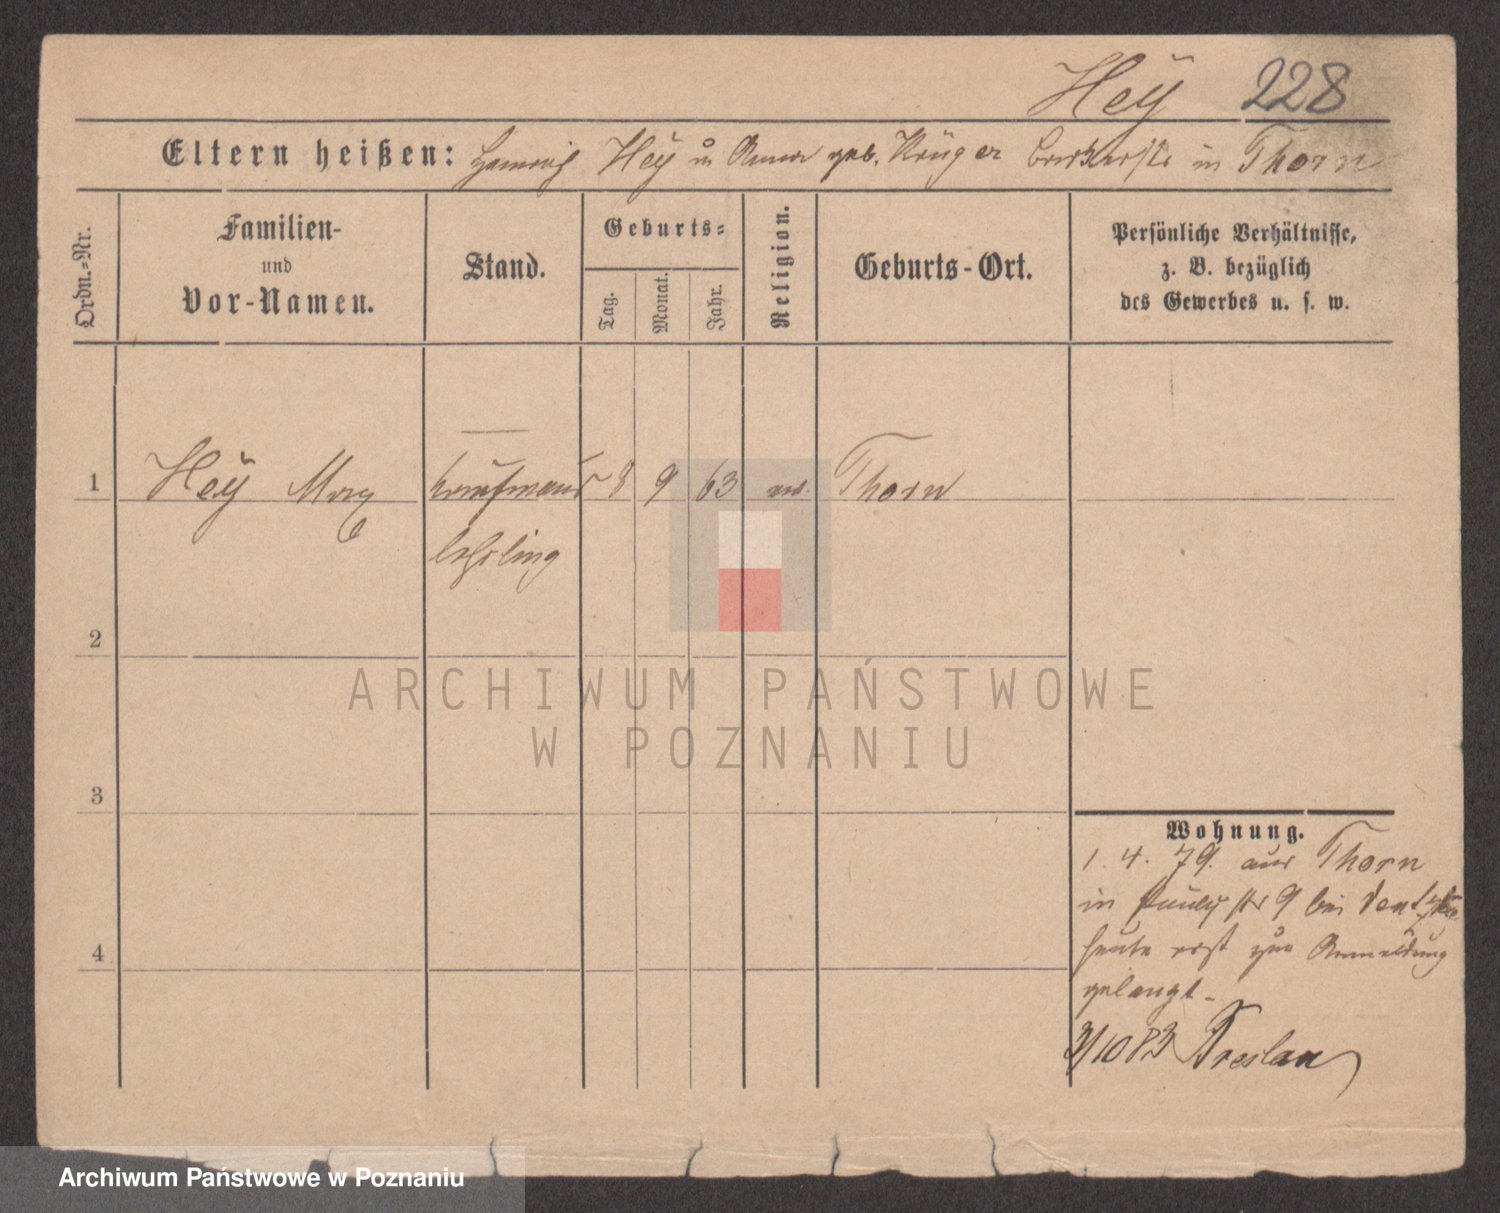 Hey 228
Eltern heißen: Heinrich Hey u Anna geb. Krüger in Thorn
Ordn.-Nr.
Familien-
und
Vor-Namen.
Stand.
Geburts-
Tag.
Monat.
Jahr.
Religion.
Geburts-Ort.
Persönliche Verhältnisse,
z. B. bezüglich
des Gewerbes u. s. w.
1 Hey Max Kaufmanns 8 9 63 ev. Thorn
lehrling
2
3
4
Wohnung.
1. 4. 79. aus Thorn
in 9 bei
heute erst zur Anmeldung
gelangt.
3/10 83 Breslau
ARCHIWUM PAŃSTWOWE
W POZNANIU
Archiwum Państwowe w Poznaniu